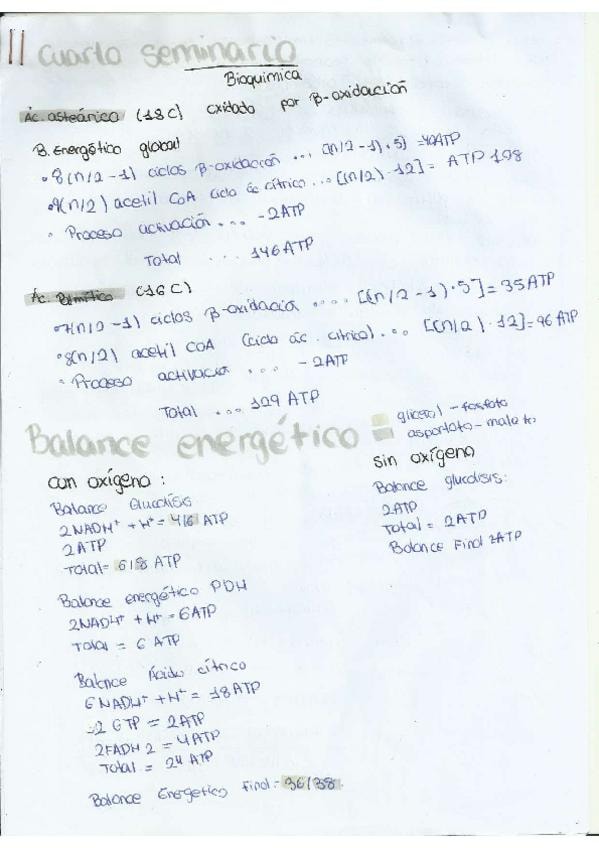 Cuarto seminario
Bioquimica
Ác. esteárico (18C) oxidado por β-oxidación
B. Energético global
· 8(n/2-1) ciclos β-oxidación ... [(n/2-1)·5] = 40ATP
· 9(n/2) acetil CoA ciclo ác cítrico... [(n/2)·12] = ATP 108
· Proceso activación ... -2ATP
Total ... 146 ATP
Ác. Palmítico (16C)
· 7(n/2-1) ciclos β-oxidación .... [(n/2-1)·5] = 35ATP
· 8(n/2) acetil COA (ciclo ác. cítrico)... [(n/2)·12] = 96 ATP
· Proceso activació ... -2ATP
Total ... 129 ATP
Balance energético
glicerol-fosfato
aspartato-malato
con oxígeno:
Balance Glucólisis
2NADH⁺ + H⁺ = 4/6 ATP
2ATP
Total = 6/8 ATP
Balance energético PDH
2NADH⁺ + H⁺ = 6ATP
Total = 6 ATP
Balance Ácido cítrico
6NADH⁺ + H⁺ = 18ATP
2 GTP = 2ATP
2FADH2 = 4ATP
Total = 24 ATP
Balance Energético Final = 36/38
sin oxígeno
Balance glucolisis:
2ATP
Total = 2ATP
Balance Final 2ATP